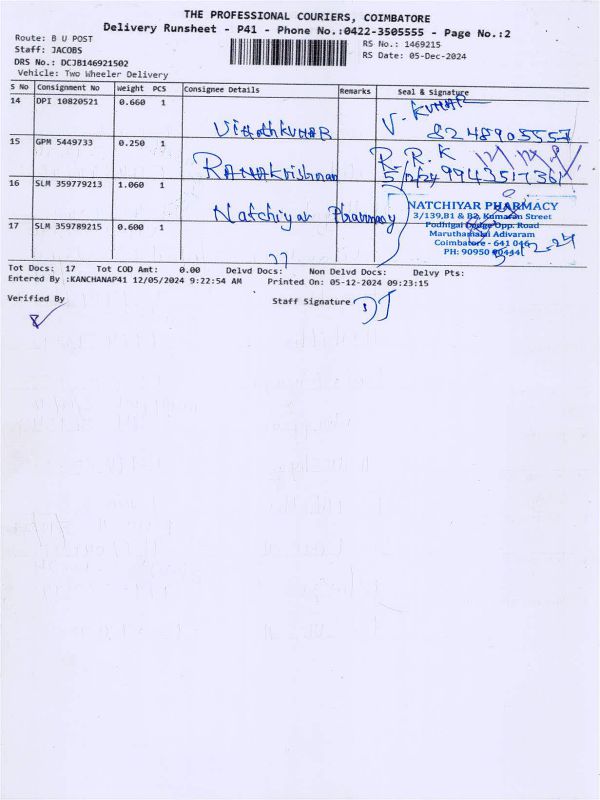 THE PROFESSIONAL COURIERS, COIMBATORE
Delivery Runsheet - P41 - Phone No.:0422-3505555 - Page No.:2
Route: B U POST
RS No.: 1469215
Staff: JACOBS
RS Date: 05-Dec-2024
DRS No.: DCJB146921502
Vehicle: Two Wheeler Delivery
S No Consignment No Weight PCS Consignee Details Remarks Seal & Signature
14 DPI 10820521 0.660 1
V. KUMAR
VinothkUMAR
8248905557
15 GPM 5449733 0.250 1
R. R. K
RAMAKrishnan
5/12/24 9943517361
16 SLM 359779213 1.060 1
Natchiyar Pharmacy
NATCHIYAR PHARMACY
3/139,B1 & B2, Kumaran Street
Podhigai Opp. Road
Maruthamalai Adivaram
Coimbatore - 641 046
17 SLM 359789215 0.600 1
PH: 90950
Tot Docs: 17 Tot COD Amt: 0.00 Delvd Docs: Non Delvd Docs: Delvy Pts:
Entered By :KANCHANAP41 12/05/2024 9:22:54 AM Printed On: 05-12-2024 09:23:15
Verified By
Staff Signature